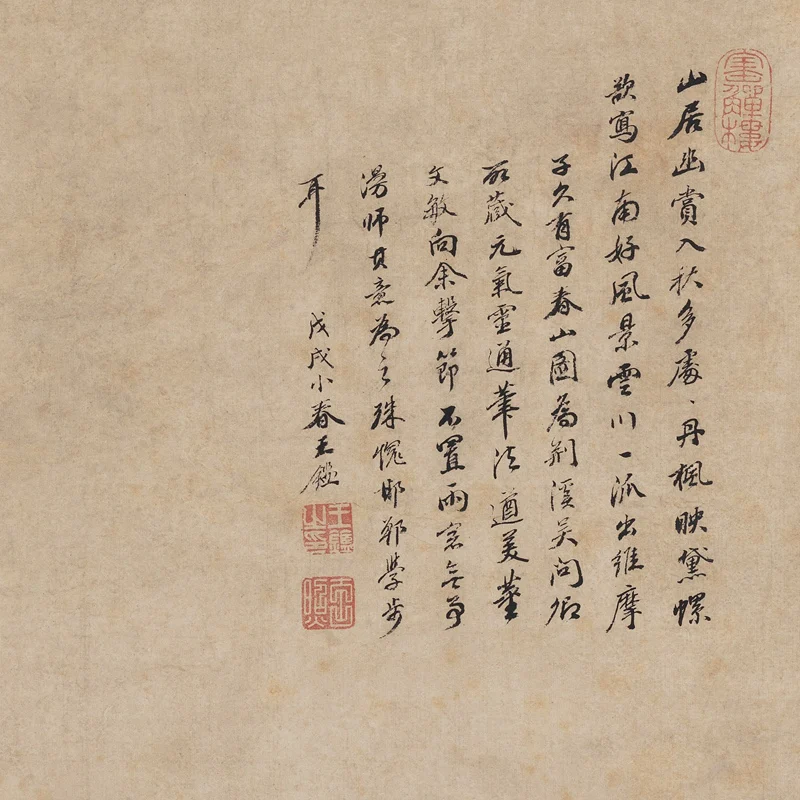 山居幽賞入秋多處、丹楓映黛螺
欲寫江南好風景雲川一派出維摩
子久有富春山圖為荊溪吳問卿
所藏元氣靈通筆法遒美董
文敏向余擊節不置雨窓無事
漫師其意為之殊愧邯鄲學步
耳
戊戌小春王鑑
王鑑之印